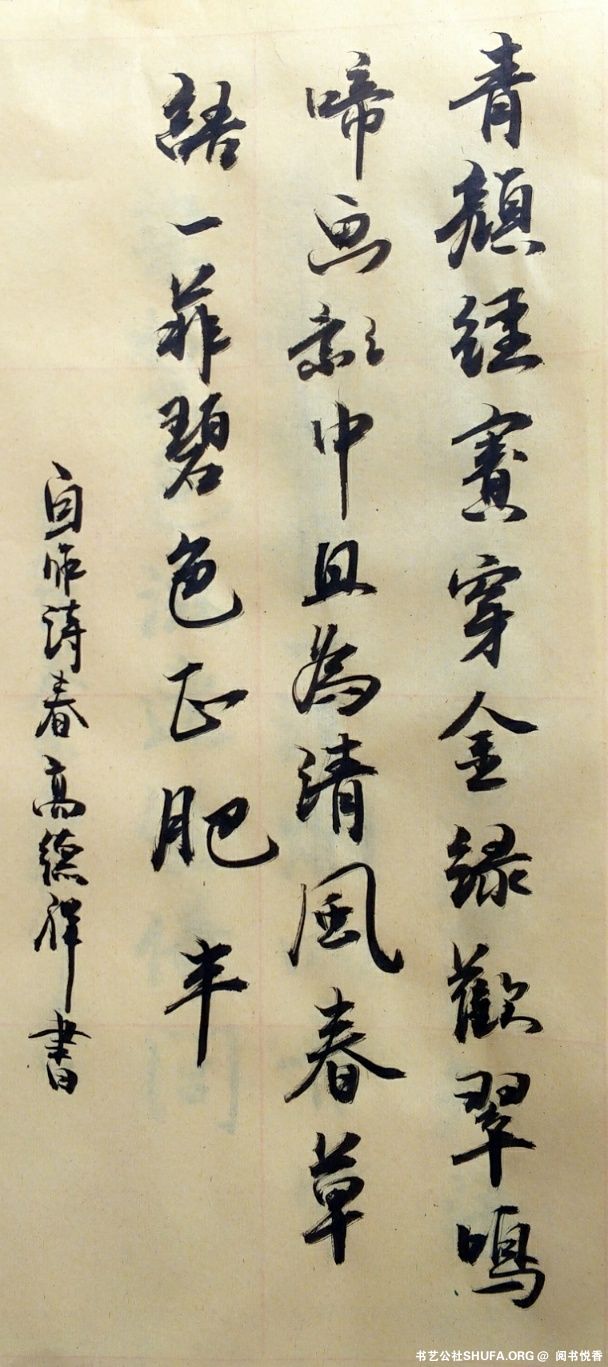 青顏經賽穿金綠歡翠鳴
啼畫影中且為清風春草
語一菲碧色正肥半
自作詩春高德祥書
书艺公社SHUFA.ORG @ 阅书悦香